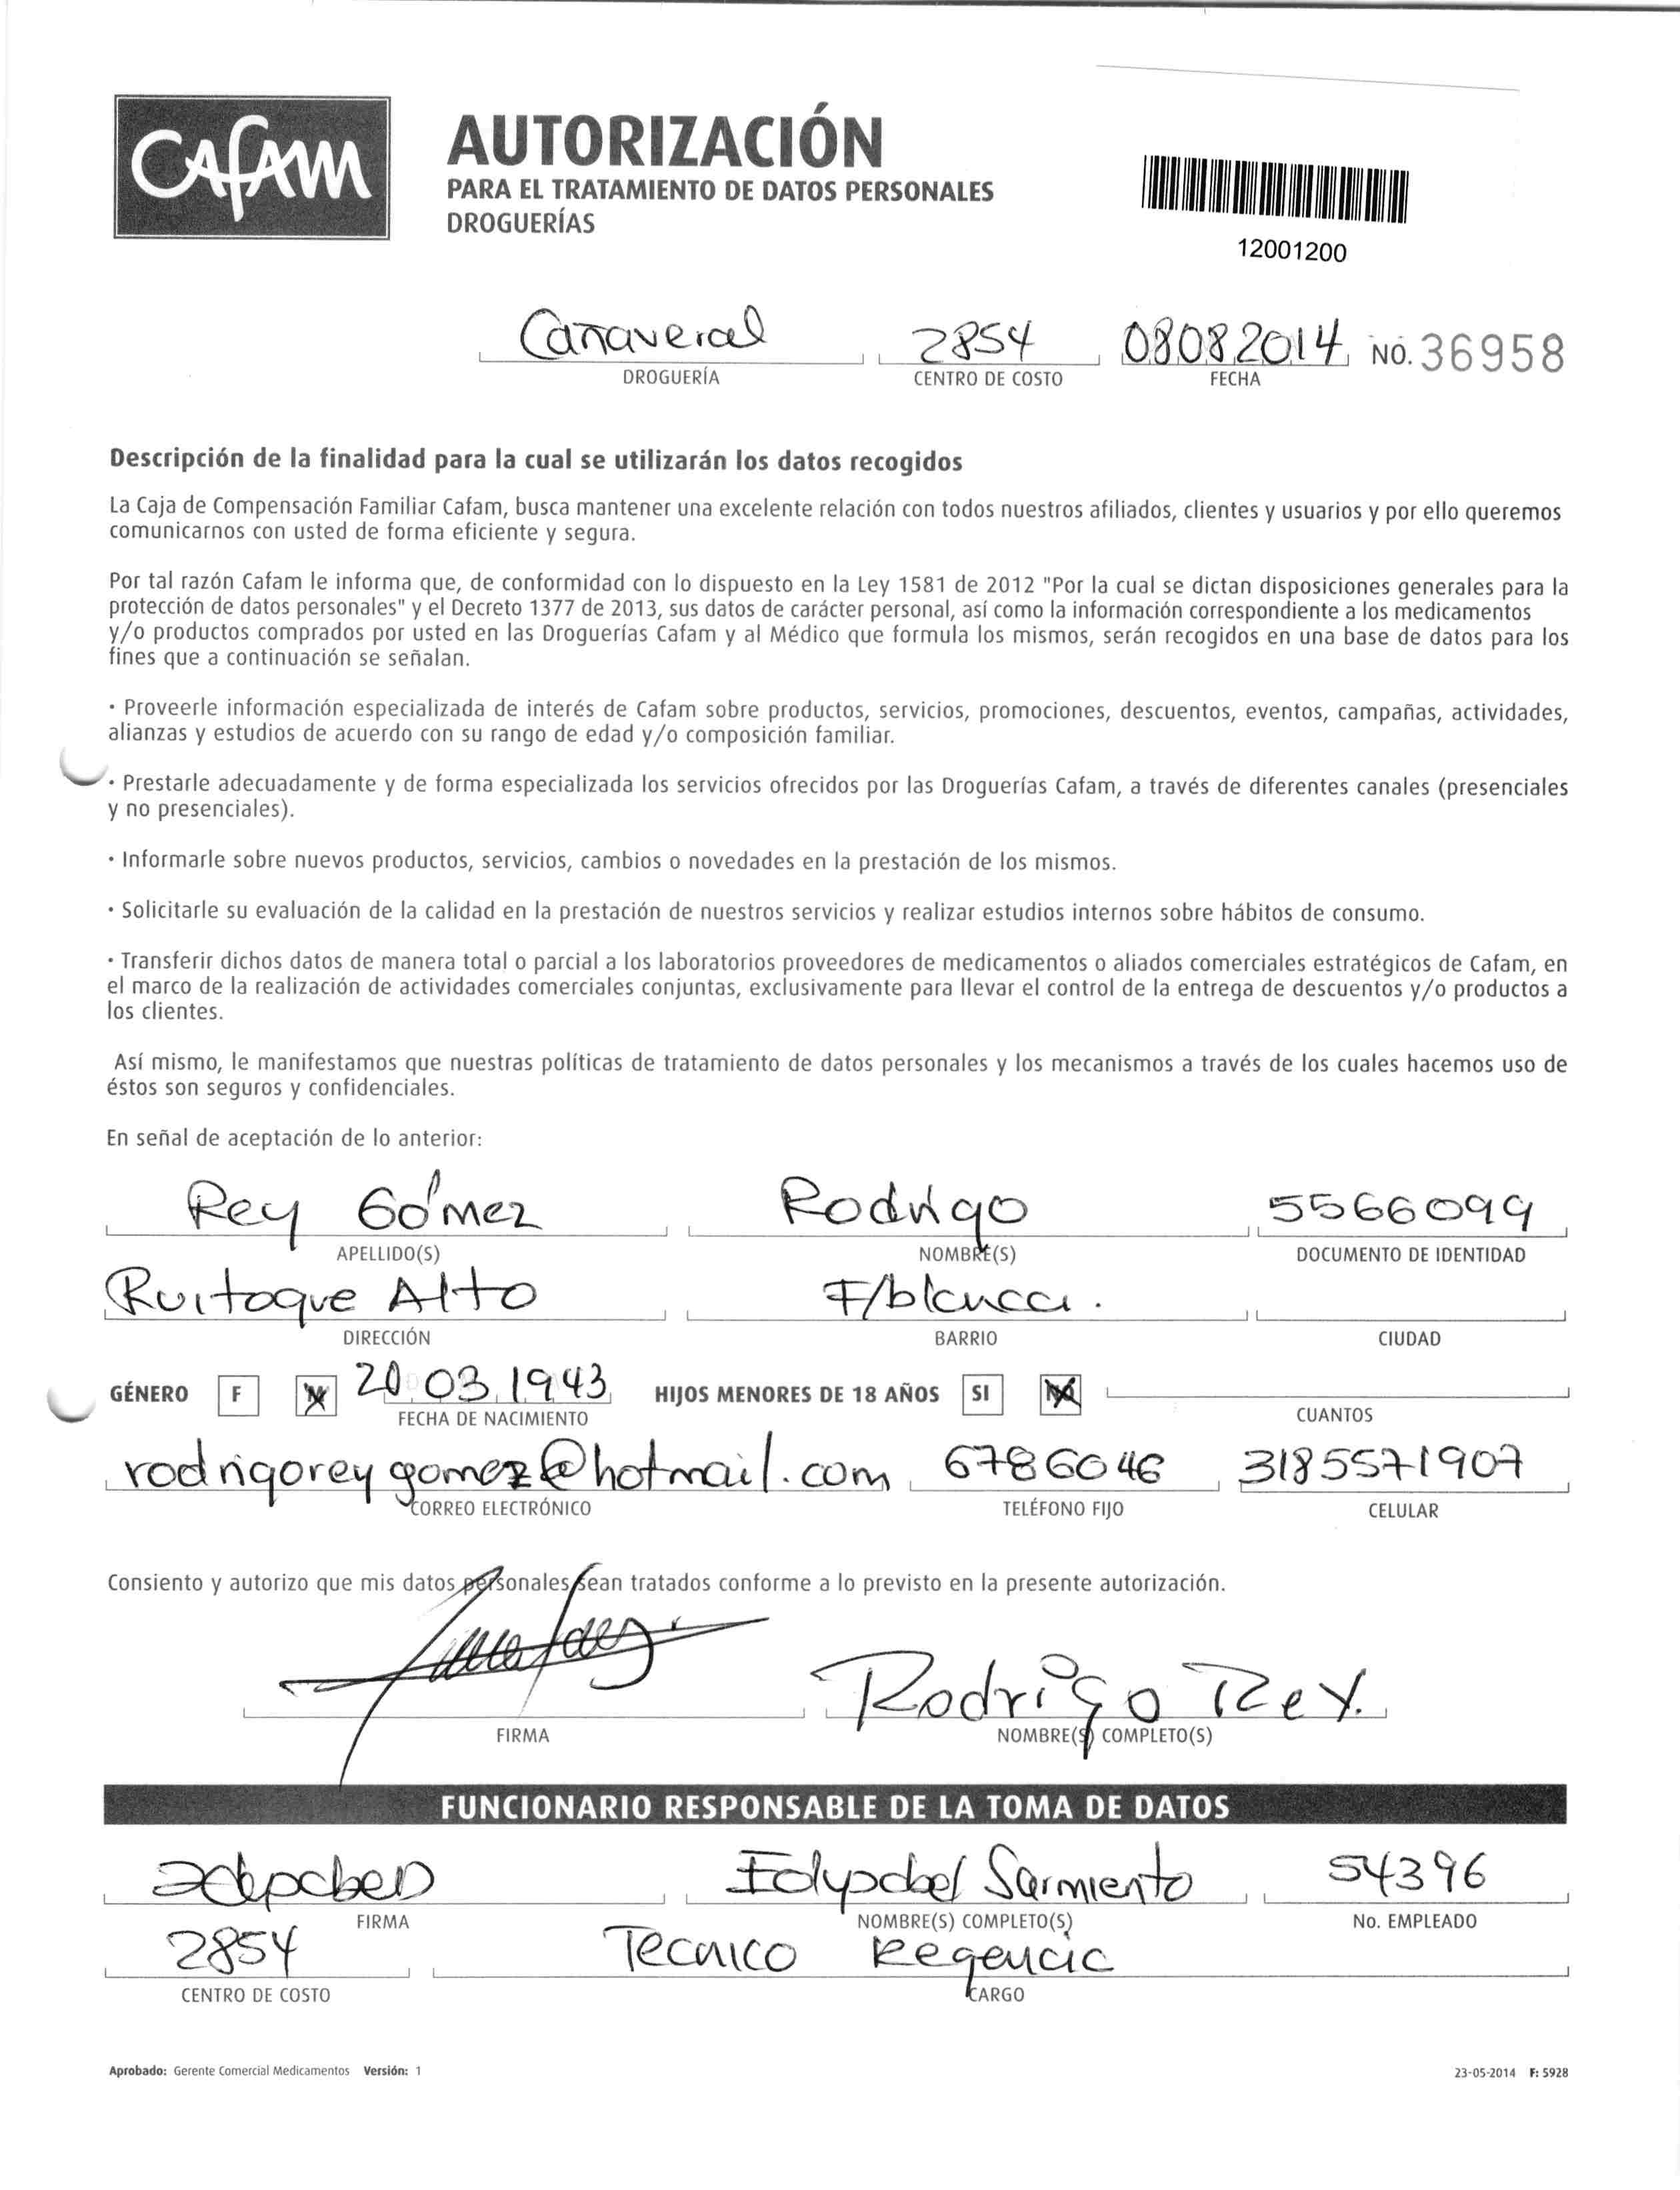 Cafam
AUTORIZACIÓN
PARA EL TRATAMIENTO DE DATOS PERSONALES
DROGUERÍAS
12001200
Cañaveral 2854 08082014 NO. 36958
DROGUERÍA CENTRO DE COSTO FECHA
Descripción de la finalidad para la cual se utilizarán los datos recogidos
La Caja de Compensación Familiar Cafam, busca mantener una excelente relación con todos nuestros afiliados, clientes y usuarios y por ello queremos
comunicarnos con usted de forma eficiente y segura.
Por tal razón Cafam le informa que, de conformidad con lo dispuesto en la Ley 1581 de 2012 "Por la cual se dictan disposiciones generales para la
protección de datos personales" y el Decreto 1377 de 2013, sus datos de carácter personal, así como la información correspondiente a los medicamentos
y/o productos comprados por usted en las Droguerías Cafam y al Médico que formula los mismos, serán recogidos en una base de datos para los
fines que a continuación se señalan.
· Proveerle información especializada de interés de Cafam sobre productos, servicios, promociones, descuentos, eventos, campañas, actividades,
alianzas y estudios de acuerdo con su rango de edad y/o composición familiar.
· Prestarle adecuadamente y de forma especializada los servicios ofrecidos por las Droguerías Cafam, a través de diferentes canales (presenciales
y no presenciales).
· Informarle sobre nuevos productos, servicios, cambios o novedades en la prestación de los mismos.
· Solicitarle su evaluación de la calidad en la prestación de nuestros servicios y realizar estudios internos sobre hábitos de consumo.
· Transferir dichos datos de manera total o parcial a los laboratorios proveedores de medicamentos o aliados comerciales estratégicos de Cafam, en
el marco de la realización de actividades comerciales conjuntas, exclusivamente para llevar el control de la entrega de descuentos y/o productos a
los clientes.
Así mismo, le manifestamos que nuestras políticas de tratamiento de datos personales y los mecanismos a través de los cuales hacemos uso de
éstos son seguros y confidenciales.
En señal de aceptación de lo anterior:
Rey Gómez Rodrigo 5566099
APELLIDO(S) NOMBRE(S) DOCUMENTO DE IDENTIDAD
Ruitoque Alto F/blanca.
DIRECCIÓN BARRIO CIUDAD
GÉNERO F M 20 03 1943 HIJOS MENORES DE 18 AÑOS SI NO
FECHA DE NACIMIENTO CUANTOS
rodrigoreygomez@hotmail.com 6786046 3185571907
CORREO ELECTRÓNICO TELÉFONO FIJO CELULAR
Consiento y autorizo que mis datos personales sean tratados conforme a lo previsto en la presente autorización.
Rodrigo Rey.
FIRMA NOMBRE(S) COMPLETO(S)
FUNCIONARIO RESPONSABLE DE LA TOMA DE DATOS
Sarmiento 54396
FIRMA NOMBRE(S) COMPLETO(S) No. EMPLEADO
2854 Tecnico Regencia
CENTRO DE COSTO CARGO
Aprobado: Gerente Comercial Medicamentos Versión: 1 23-05-2014 F: 5928